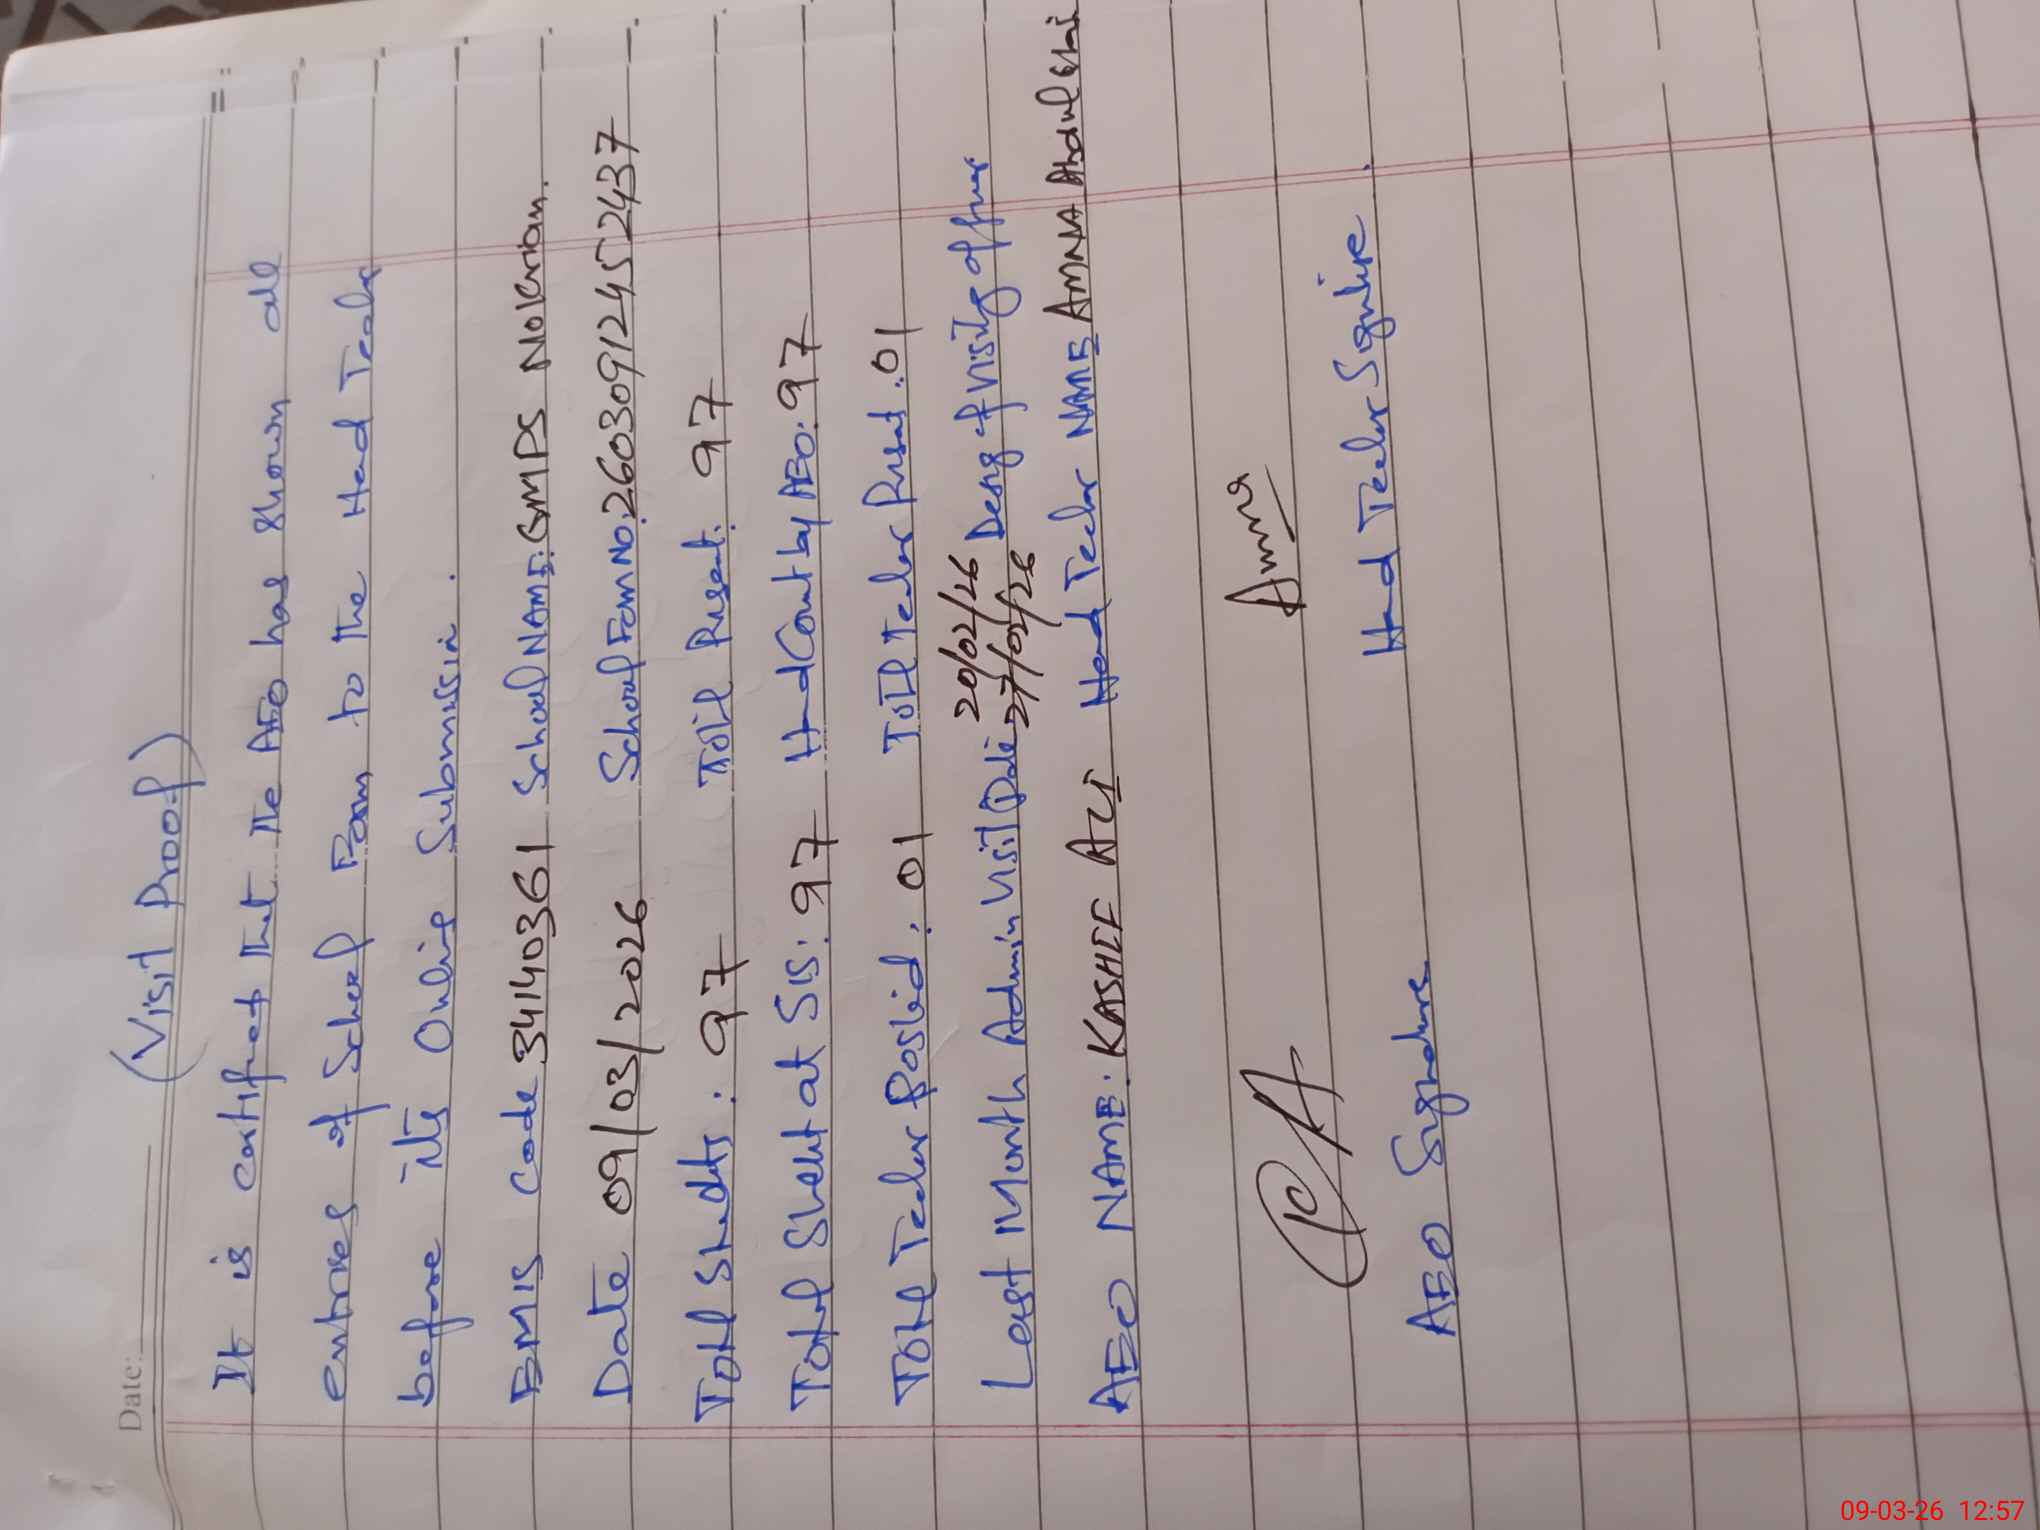 Date:
(Visit Proof)
It is certified that the AEO has shown all
entries of School Form to the Head Teacher
before its Online Submission.
EMIS Code 34140361 School NAME: GMPS Nokarian.
Date 09/03/2026 School Form No: 26030912452437
Total Students: 97 Total Present: 97
Total Student at SIS: 97 Head Count by AEO: 97
Total Teacher Posted: 01 Total Teacher Present: 01
20/02/26
Last Month Admin Visit Date 27/02/26 Desig of visitg officer
AEO NAME: KASHIF ALI Head Teacher NAME AMNA Abdul Ghani
Amna
AEO Signature Head Teacher Signature.
09-03-26 12:57